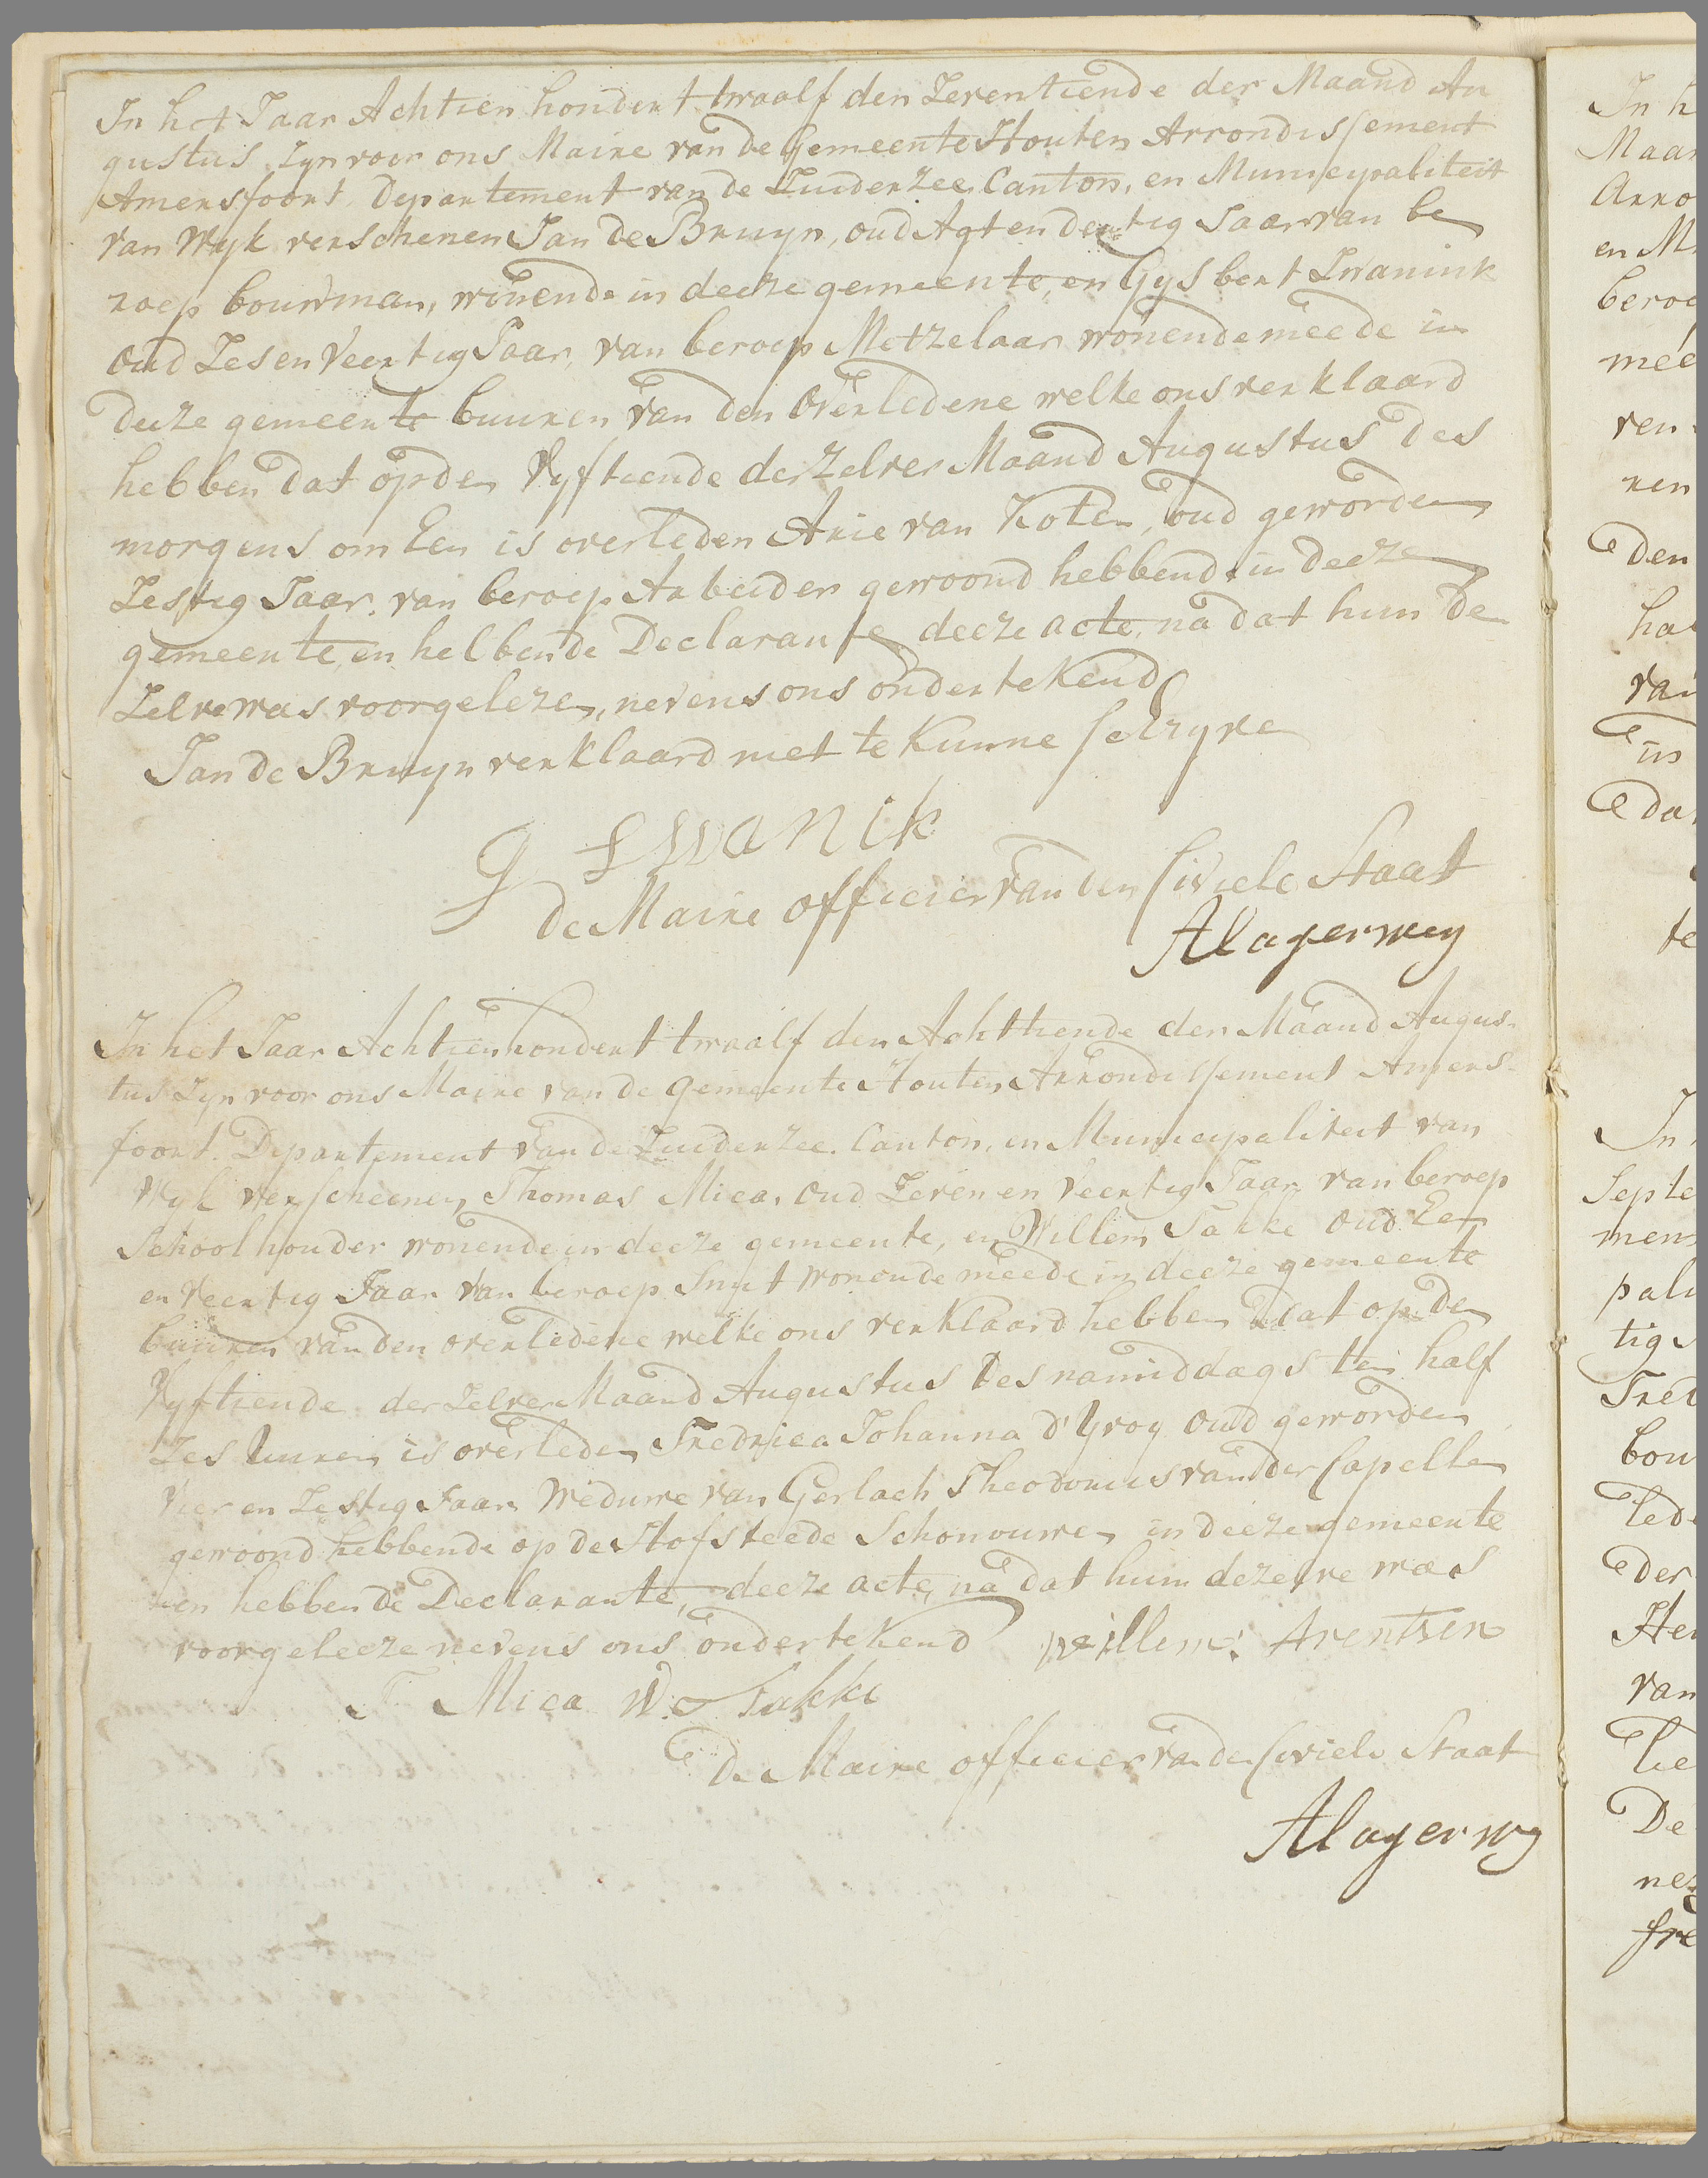 In het Jaar Achtien hondert twaalf den Zeventiende der Maand Au
gustus Zyn voor ons Maire van de Gemeente Houten Arrondissement
Amersfoort Departement van de Zuider Zee Canton, en Municipaliteit
van Wyk verschenen Jan de Bruyn, oud Agt en dertig Jaar van be
roep bouwman, wonende in deeze gemeente, en Gysbert Zwanink
oud Zes en Veertig Jaar, van beroep Metzelaar wonende meede in
deeze gemeente buuren van den Overledene welke ons verklaard
hebben dat op den Vyftiende derzelver Maand Augustus des
morgens om Een is overleden Arie van Koten, oud geworden
Zestig Jaar, van beroep Arbeider gewoond hebbende in deeze
gemeente, en hebbende Declarante deeze acte, na dat hun de
Zelve was voorgelezen, nevens ons ondertekend
Jan de Bruyn verklaard niet te kunne schryve
G Zwanik
de Maire officier van den Civiele Staat
A lagerwey
In het Jaar Achtien hondert twaalf den Achttiende der Maand Augus-
tus Zyn voor ons Maire van de gemeente Houten, Arrondissement Amers-
foort. Departement van de Zuider Zee. Canton, en Municipaliteit van
Wyk verscheenen Thomas Mica, oud Zeven en Veertig Jaar van beroep
Schoolhouder wonende in deeze gemeente, en Willem Takke oud Een
en Veertig Jaar van beroep Smit wonende meede in deeze gemeente
buuren van den overledene welke ons verklaard hebben dat op den
Vyftiende der Zelver Maand Augustus des namiddags ten half
Zes Uuren is overleden Fredrica Johanna d'Yvoy oud geworden
Vier en Zestig Jaar Weduwe van Gerlach Theodorus van der Capelle
gewoond hebbende op de Hofsteede Schonouwen in deeze gemeente
en hebbende Declarante, deeze acte, na dat hun dezelve was
voorgeleeze nevens ons ondertekend willem: Arentsen
T Mica W. Takke
De Maire officier van de Civiele Staat
A lagerwy
In h
Maan
Arro
en M
beroe
mee
ven
ren
den
ha
van
in
dat
te
In
Septe
men
pali
tig
Fred
bou
lede
der
Her
van
lie
De
nev
fre